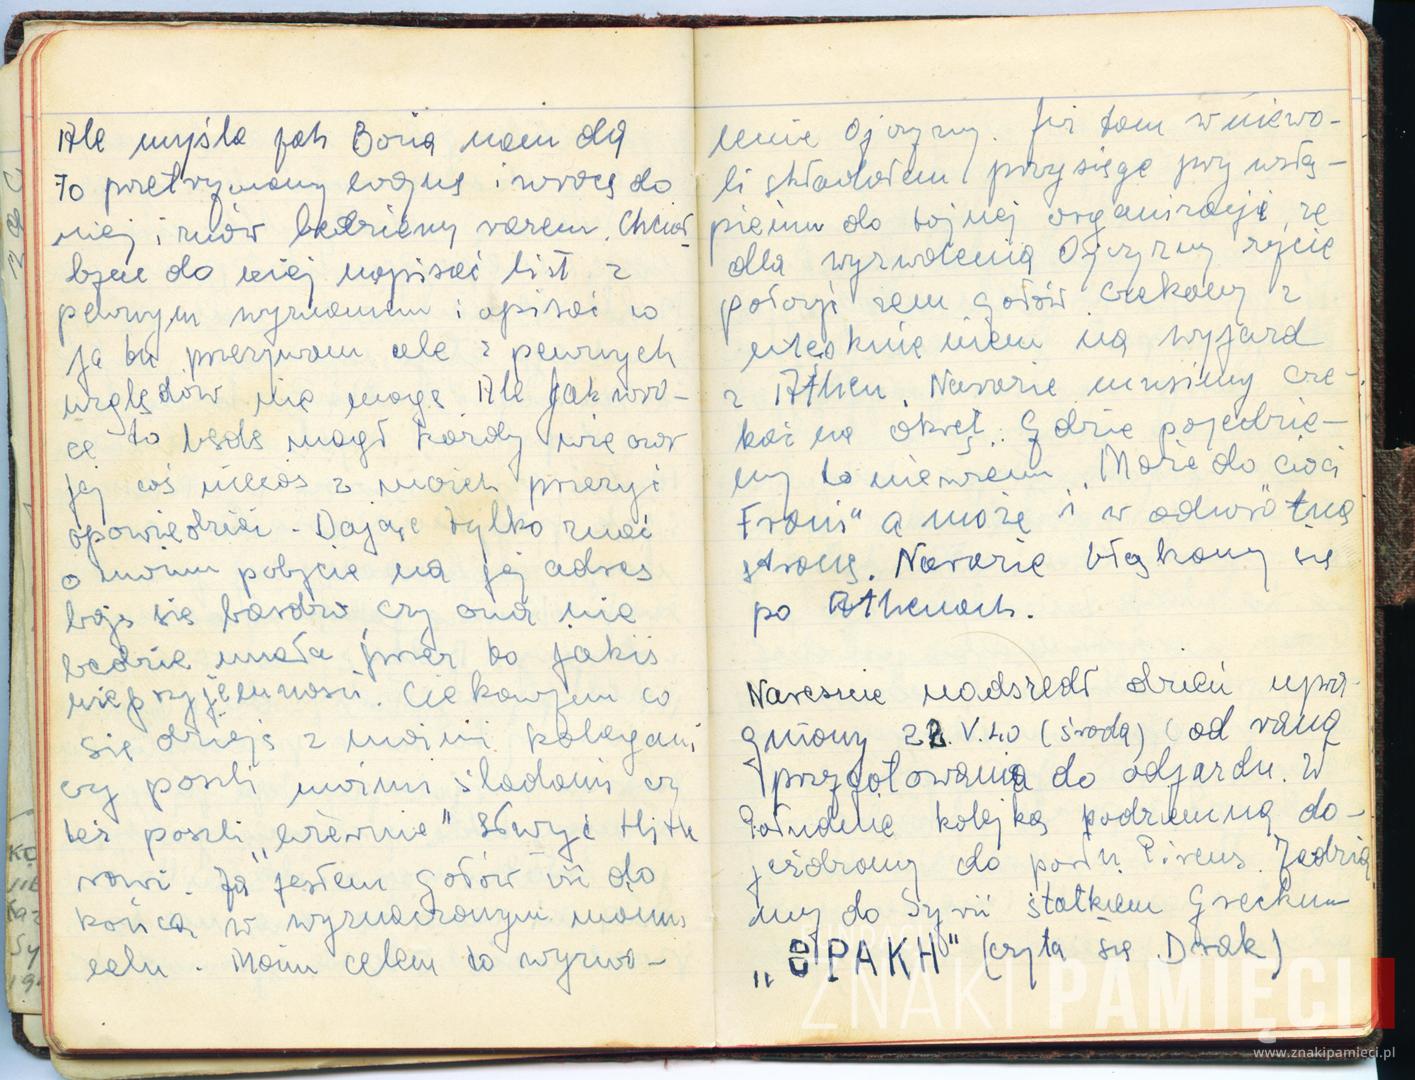 Ale myśle jak Boria nam da
To pretrzymamy wojnę i wrócę do
niej i znów będziemy razem. Chciał
bym do niej napisać list z
pewnym wyznaniem i opisać co
ja tu przeżywam ale z pewnych
względów nie mogę. Ale jak wró-
cę to będę mógł każdy wieczór
jej coś niecoś z moich przeżyć
opowiedzieć. Dając tylko znać
o moim pobycie na jej adres
boję się bardzo czy ona nie
będzie miała przez to jakiś
nieprzyjemności. Ciekawym co
się dzieje z moimi kolegami
czy poszli moimi śladami czy
też poszli „wiernie" służyć Hitle
rowi. Ja jestem gotów iść do
końca w wyznaczonym moim
celu. Moim celem to wyzwo-
lenie Ojczyzny. Już tam w niewo-
li składałem przysięgę przy wstą-
pieniu do tajnej organizacji, że
dla wyzwolenia Ojczyzny życie
położyć jem gotów czekamy z
utęsknieniem na wyjazd
z Athen. Narazie musimy cze-
kać na okręt. Gdzie pojedzie-
my to nie wiem. „Może do cioci
Frani" a może i w odwrotną
stronę. Narazie błąkamy się
po Athenach.
Nareszcie nadszedł dzień upra-
gniony 22.V.40 (środa) od rana
przygotowania do odjazdu. W
Południe kolejką podziemną do-
jeżdżamy do portu Pireus. Jedzie
my do Syrii statkiem Greckim
„ PAKH" (czyta się Drak)
KO
Sy
19
FUNDACJA
ZNAKI PAMIĘCI
www.znakipamieci.pl